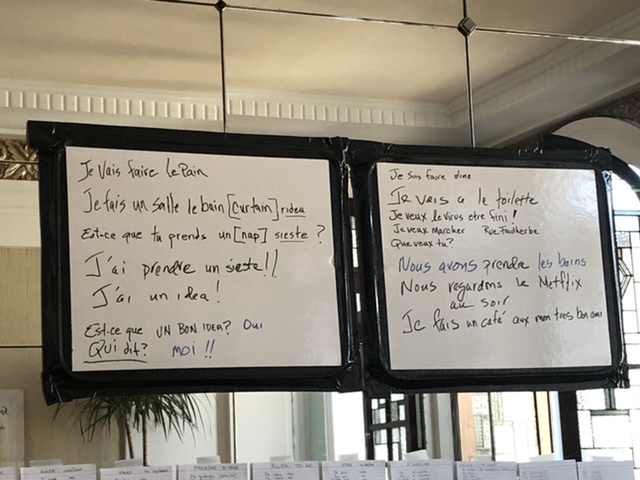 Je Vais faire le Pain
Je fais un salle le bain [curtain] rideu
Est-ce que tu prends un [nap] sieste ?
J'ai prendre un sieste!!
J'ai un idea!
Est-ce que UN BON IDEA? Oui
QUI dit? MOI !!
Je suis faire dine
Je vais a le toilette
Je veux le virus etre fini!
Je veux marcher Rue Faidherbe
Que veux tu?
Nous avons prendre les bains
Nous regardons le Netflix
au soir
Je fais un café aux mon tres bon ami